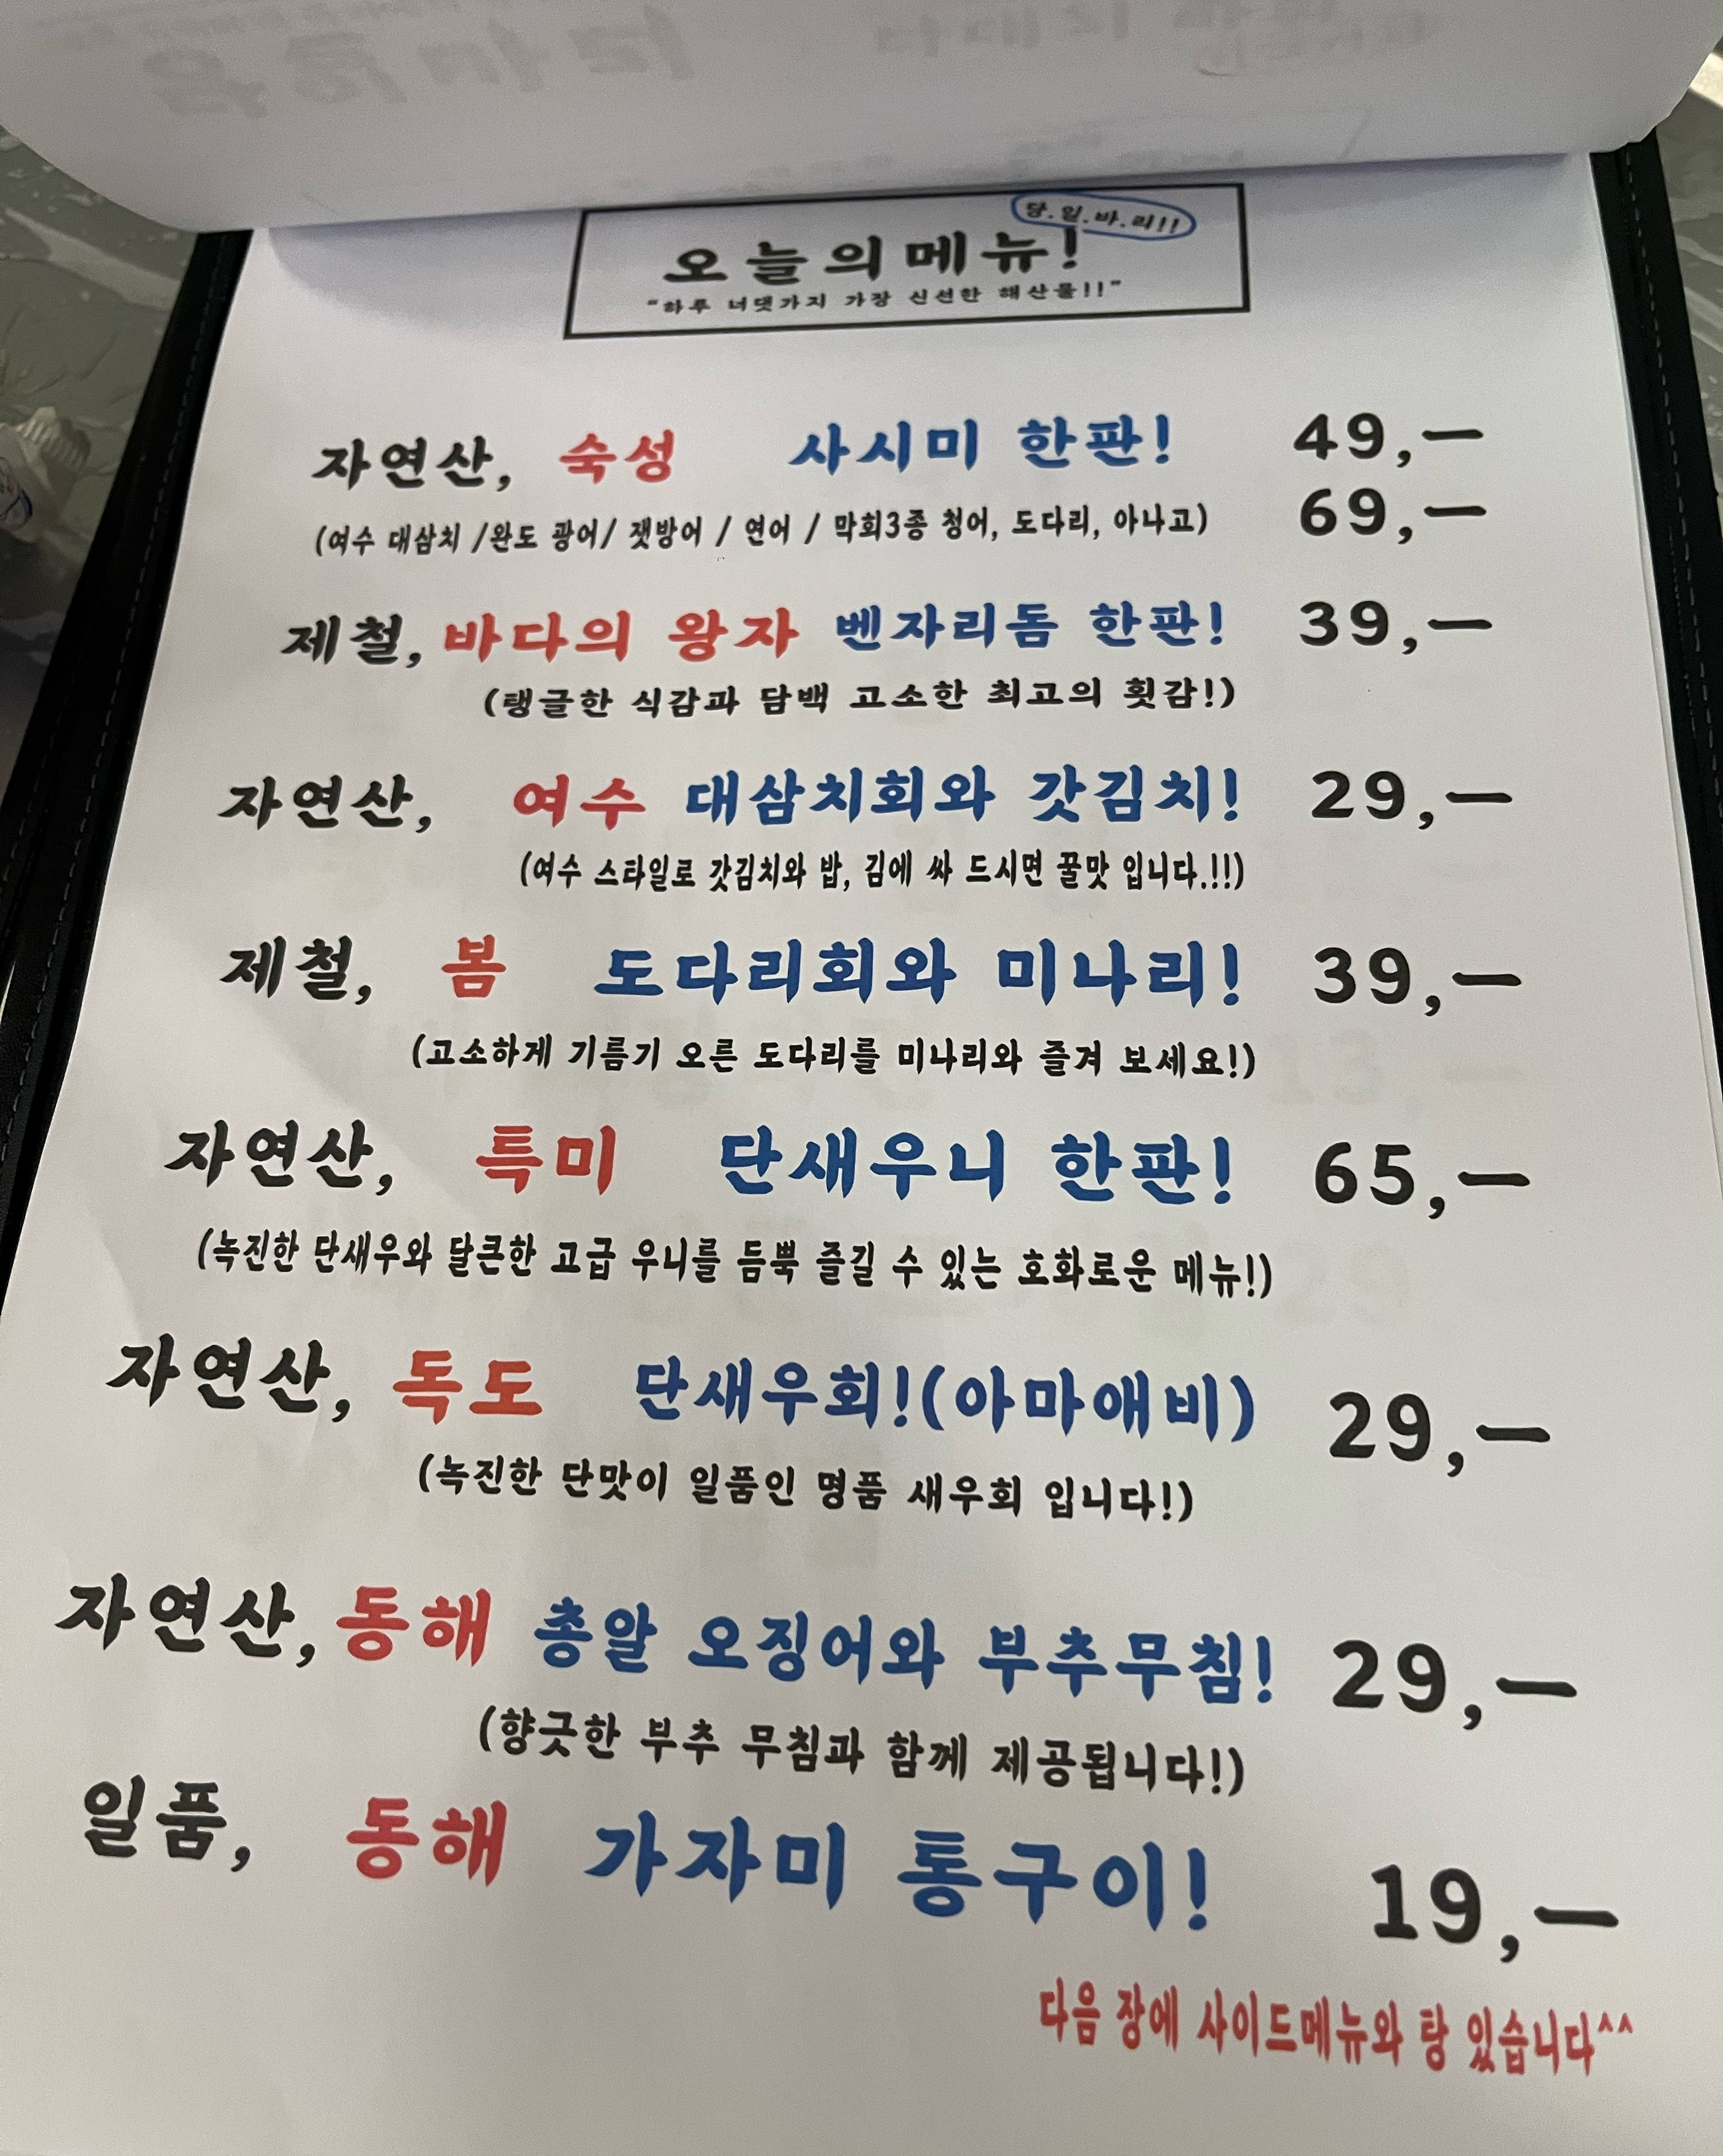 당.일.바.리!!
오늘의메뉴!
"하루 너댓가지 가장 신선한 해산물!!"
자연산, 숙성 사시미 한판! 49,—
(여수 대삼치 /완도 광어/ 잿방어 / 연어 / 막회3종 청어, 도다리, 아나고) 69,—
제철, 바다의 왕자 벤자리돔 한판! 39,—
(탱글한 식감과 담백 고소한 최고의 횟감!)
자연산, 여수 대삼치회와 갓김치! 29,—
(여수 스타일로 갓김치와 밥, 김에 싸 드시면 꿀맛 입니다.!!)
제철, 봄 도다리회와 미나리! 39,—
(고소하게 기름기 오른 도다리를 미나리와 즐겨 보세요!)
자연산, 특미 단새우니 한판! 65,—
(녹진한 단새우와 달큰한 고급 우니를 듬뿍 즐길 수 있는 호화로운 메뉴!)
자연산, 독도 단새우회!(아마애비) 29,—
(녹진한 단맛이 일품인 명품 새우회 입니다!)
자연산, 동해 총알 오징어와 부추무침! 29,—
(향긋한 부추 무침과 함께 제공됩니다!)
일품, 동해 가자미 통구이! 19,—
다음 장에 사이드메뉴와 탕 있습니다^^